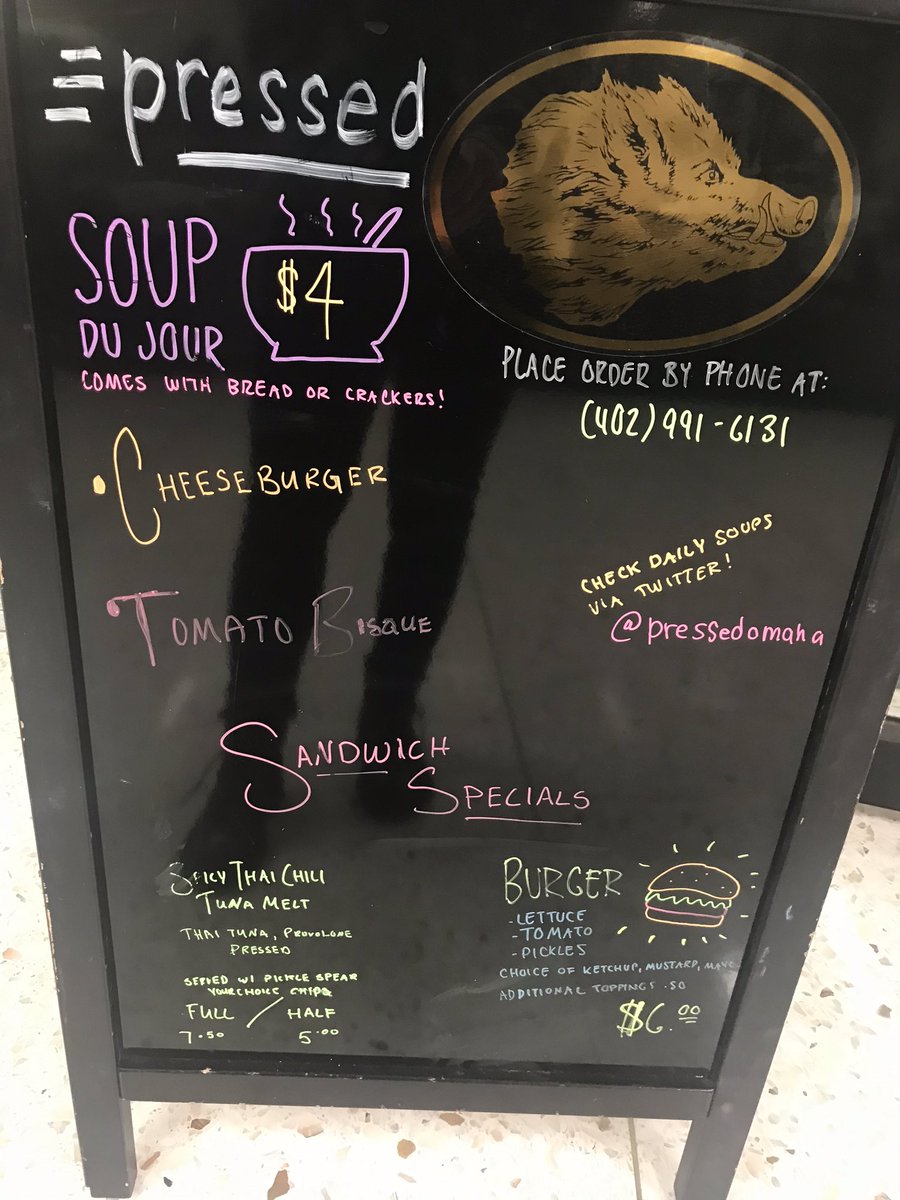 pressed
SOUP
DU JOUR
$4
COMES WITH BREAD OR CRACKERS!
PLACE ORDER BY PHONE AT:
(402) 991-6131
• CHEESEBURGER
CHECK DAILY SOUPS
VIA TWITTER!
@pressedomaha
TOMATO BISQUE
SANDWICH
SPECIALS
SPICY THAI CHILI
TUNA MELT
THAI TUNA, PROVOLONE
PRESSED
SERVED W/ PICKLE SPEAR
YOUR CHOICE CHIPS
FULL / HALF
7.50 5.00
BURGER
- LETTUCE
- TOMATO
- PICKLES
CHOICE OF KETCHUP, MUSTARD, MAYO
ADDITIONAL TOPPINGS .50
$6.00